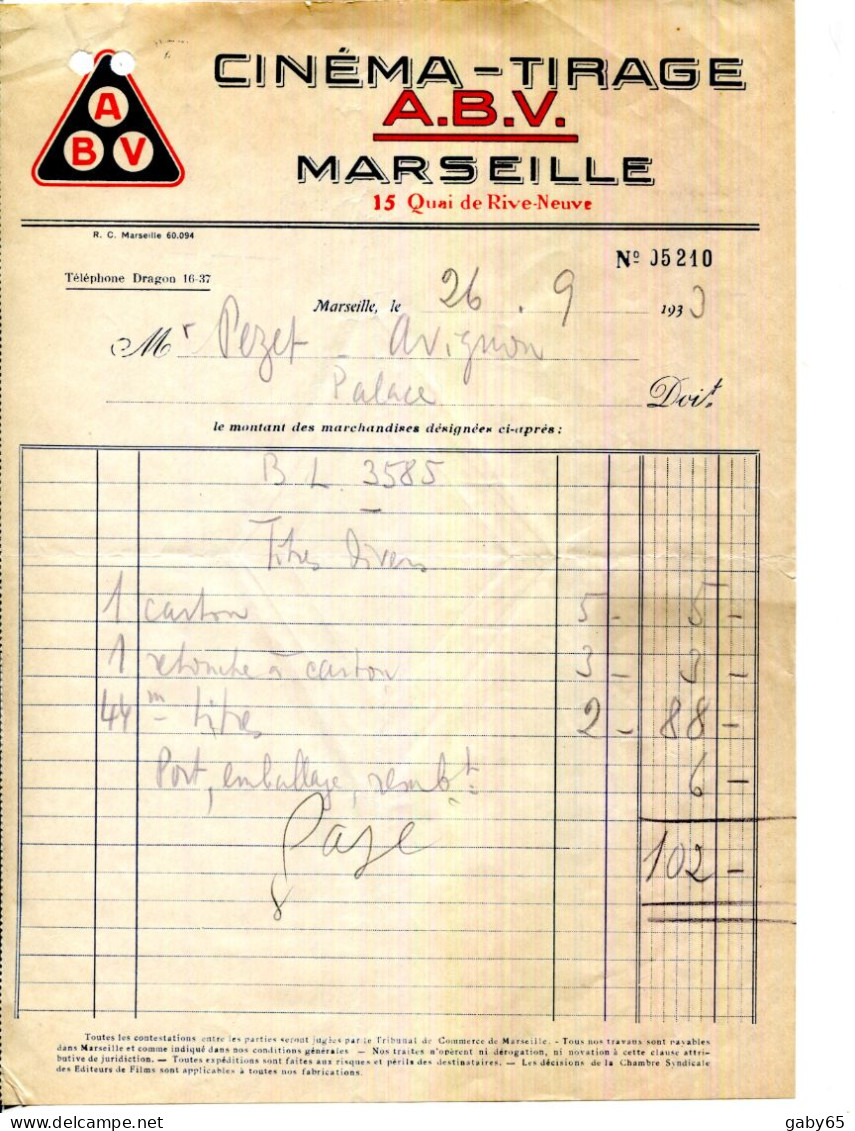 A
B V
CINÉMA-TIRAGE
A.B.V.
MARSEILLE
15 Quai de Rive-Neuve
R. C. Marseille 60.094
Nº 05210
Téléphone Dragon 16-37
Marseille, le 26 . 9 1933
Mr Pezet - Avignon
Palace Doit
le montant des marchandises désignées ci-après :
B L. 3585
Titres divers
1 carton 5 - 5 -
1 retouche à carton 3 - 3 -
44 m titres 2 - 88 -
Port, emballage, rembt. 6 -
Payé
102 -
Toutes les contestations entre les parties seront jugées par le Tribunal de Commerce de Marseille. - Tous nos travaux sont payables
dans Marseille et comme indiqué dans nos conditions générales. — Nos traites n'opèrent ni dérogation, ni novation à cette clause attri-
butive de juridiction. — Toutes expéditions sont faites aux risques et périls des destinataires. — Les décisions de la Chambre Syndicale
des Editeurs de Films sont applicables à toutes nos fabrications.
gaby65